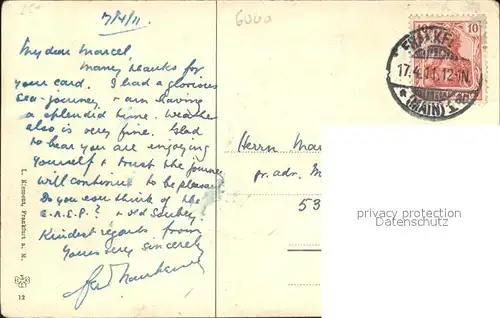 7/4/11
6000
My dear Marcel,
Many thanks for
your card. I had a glorious
sea-journey & am having
a splendid time. Weather
also is very fine. Glad
to hear you are enjoying
yourself & trust the journey
will continue to be pleasant
Do you ever think of the
& old
Kindest regards from
Yours very sincerely
Herrn
pr. adr. M
53
10
FRANKF
17.4.11. 12-1N.
(MAIN) 1
L. Klement, Frankfurt a. M.
12
privacy protection
Datenschutz